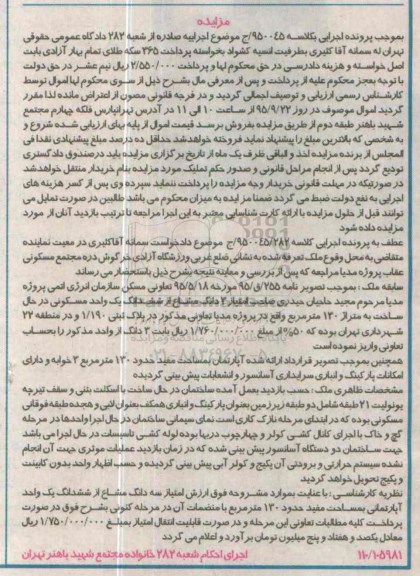 مزایده
بموجب پرونده اجرایی بکلاسه ۹۵۰۰۴۵/ج موضوع اجراییه صادره از شعبه ۲۸۲ دادگاه عمومی حقوقی
تهران له سمانه آقا کثیری بطرفیت انسیه کشواد بخواسته پرداخت ۳۶۵ سکه طلای تمام بهار آزادی بابت
اصل خواسته و هزینه دادرسی در حق محکوم لها و پرداخت ۲/۵۵۰/۰۰۰ ریال نیم عشر در حق دولت
با توجه بعجز محکوم علیه از پرداخت و پس از معرفی مال بشرح ذیل از سوی محکوم لها اموال توسط
کارشناس رسمی ارزیابی و توصیف اجمالی گردید و در فرجه قانونی مصون از اعتراض مانده لذا مقرر
گردید اموال موصوف در روز ۹۵/۹/۲۲ از ساعت ۱۰ الی ۱۱ در آدرس تهرانپارس فلکه چهارم مجتمع
شهید باهنر طبقه دوم از طریق مزایده بفروش برسد قیمت اموال از پایه بهای ارزیابی شده شروع و
به شخصی که بالاترین مبلغ را پیشنهاد نماید فروخته خواهد شد حداقل ده درصد مبلغ پیشنهادی نقدا فی
المجلس از برنده مزایده اخذ و الباقی ظرف یک ماه از تاریخ برگزاری مزایده باید در صندوق دادگستری
تودیع گردد پس از انجام مراحل قانونی و صدور حکم تملیک مورد مزایده بنام خریدار منتقل خواهد شد
در صورتیکه در مهلت قانونی خریدار وجه مزایده را پرداخت ننماید سپرده وی پس از کسر هزینه های
اجرایی به نفع دولت ضبط می گردد ضمنا مزایده به میزان محکوم می باشد طالبین در صورت تمایل می
توانند قبل از حلول مزایده با ارائه کارت شناسایی معتبر به این اجرا مراجعه تا ترتیب بازدید آنان از مورد
مزایده داده شود
عطف به پرونده اجرایی کلاسه ۹۵۰۰۴۵/۲۸۲/ج موضوع دادخواست سمانه آقا کثیری در معیت نماینده
متقاضی به محل وقوع ملک تعرفه شده به نشانی ضلع غربی ورزشگاه آزادی خرگوش دره مجتمع مسکونی
عقاب پروژه مدیا مراجعه که پس از بررسی و معاینه نتیجه بشرح ذیل باستحضار می رساند
سابقه ملک : بموجب تصویر نامه ۹۵/۲۵۵/ص مورخه ۹۵/۵/۱۸ تعاونی مسکن سازمان انرژی اتمی پروژه
مدیا مرحوم مجید حاجیان حیدری صاحب امتیاز ۳ دانگ مشاع از ششدانگ یک واحد مسکونی در حال
ساخت به متراژ ۱۳۰ مترمربع واقع در پروژه مدیا تعاونی مذکور در پلاک ثبتی ۱/۱۹۰ و در منطقه ۲۲
شهرداری تهران بوده که ۵۰٪ از مبلغ ۱/۷۶۰/۰۰۰/۰۰۰ ریال بابت ۳ دانگ از واحد مذکور را بحساب
تعاونی واریز نموده است
همچنین بموجب تصویر قرارداد ارائه شده آپارتمان بمساحت مفید حدود ۱۳۰ متر مربع ۳ خوابه و دارای
امکانات پارکینگ و انباری سرایداری آسانسور و انشعابات پیش بینی گردیده
مشخصات ظاهری ملک : حسب بازدید بعمل آمده ساختمان در حال ساخت با اسکلت بتنی و سقف تیرچه
یونولیت ۲۱ طبقه شامل دو طبقه زیرزمین بعنوان پارکینگ و انباری همکف بعنوان لابی و هجده طبقه فوقانی
مسکونی بوده که در ابتدای مرحله نازک کاری است نمای سیمانی ساختمان در حال اجرا واحدها در مرحله
گچ و خاک با اجرای کانال کشی کولر و چهارچوب دربها بوده لوله کشی تاسیسات در حال اجرا می باشد
جهت ساختمان دو دستگاه آسانسور پیش بینی شده که در زمان بازدید عملیات موثری جهت آن انجام
نشده سیستم حرارتی و برودتی آن پکیج و کولر آبی پیش بینی گردیده و حسب اظهار واحد بدون کابینت
و پکیج تحویل خواهد گردید
نظریه کارشناسی : با عنایت بموارد مشروحه فوق ارزش امتیاز سه دانگ مشاع از ششدانگ یک واحد
آپارتمانی بمساحت مفید حدود ۱۳۰ مترمربع با منضمات آن در مرحله کنونی بشرح فوق در صورت
پرداخت کلیه مطالبات تعاونی این مرحله و در صورت قابلیت انتقال امتیاز بمبلغ ۱/۷۵۰/۰۰۰/۰۰۰ ریال
معادل یکصد و هفتاد و پنج میلیون تومان برآورد و اعلام می گردد
۱۱۰/۱۰۵۹۸۱ اجرای احکام شعبه ۲۸۲ خانواده مجتمع شهید باهنر تهران